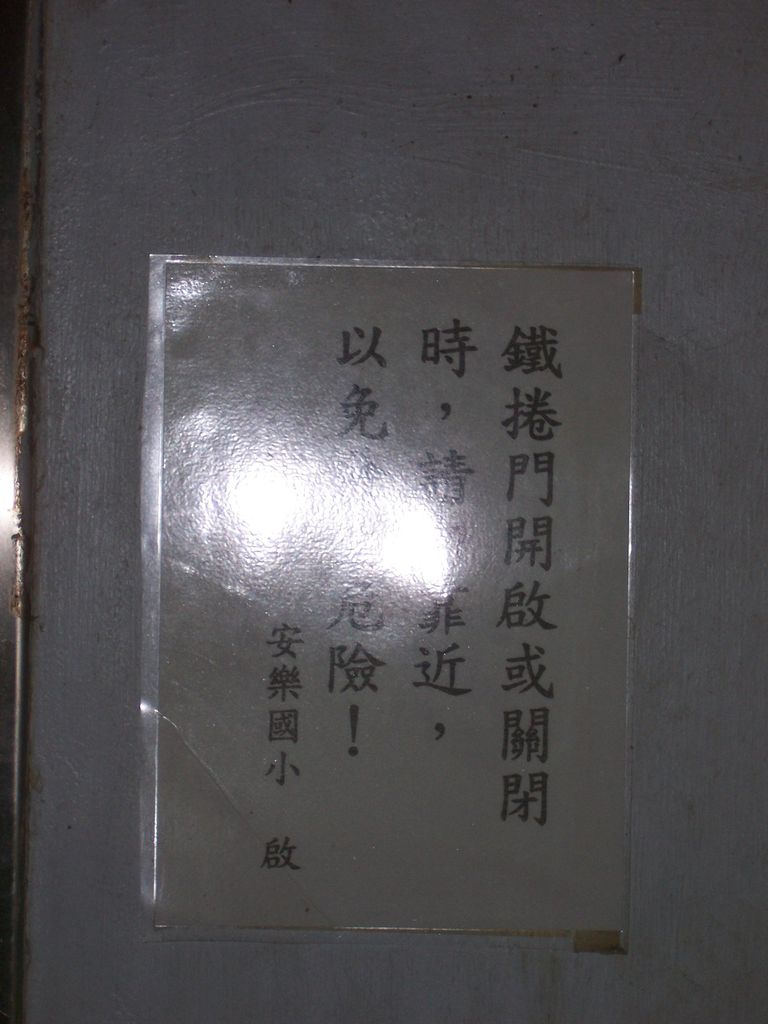 鐵捲門開啟或關閉
時，請勿靠近，
以免危險！
安樂國小 啟